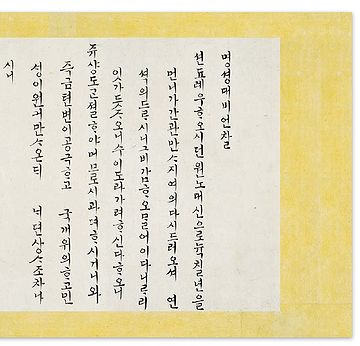 명셩대비언찰
션됴례우ᄒᆞ오시던원노대신으로뉵칠년을
먼니가간관만ᄉᆞ지여의다시드러오셔 연
셕의드ᄅᆞ시니그비감ᄒᆞ오믈어이다니ᄅᆞ리
잇가듯ᄌᆞ오니수이도라가려ᄒᆞ신다ᄒᆞ오니
쥬샹도근졀ᄒᆞ야머므로시과뎌ᄒᆞ시거니와
즉금텬변이공극ᄒᆞ고 국개위의ᄒᆞ고민
셩이원거만ᄉᆞ온ᄃᆡ 샹ᄉᆞ조차나
시니